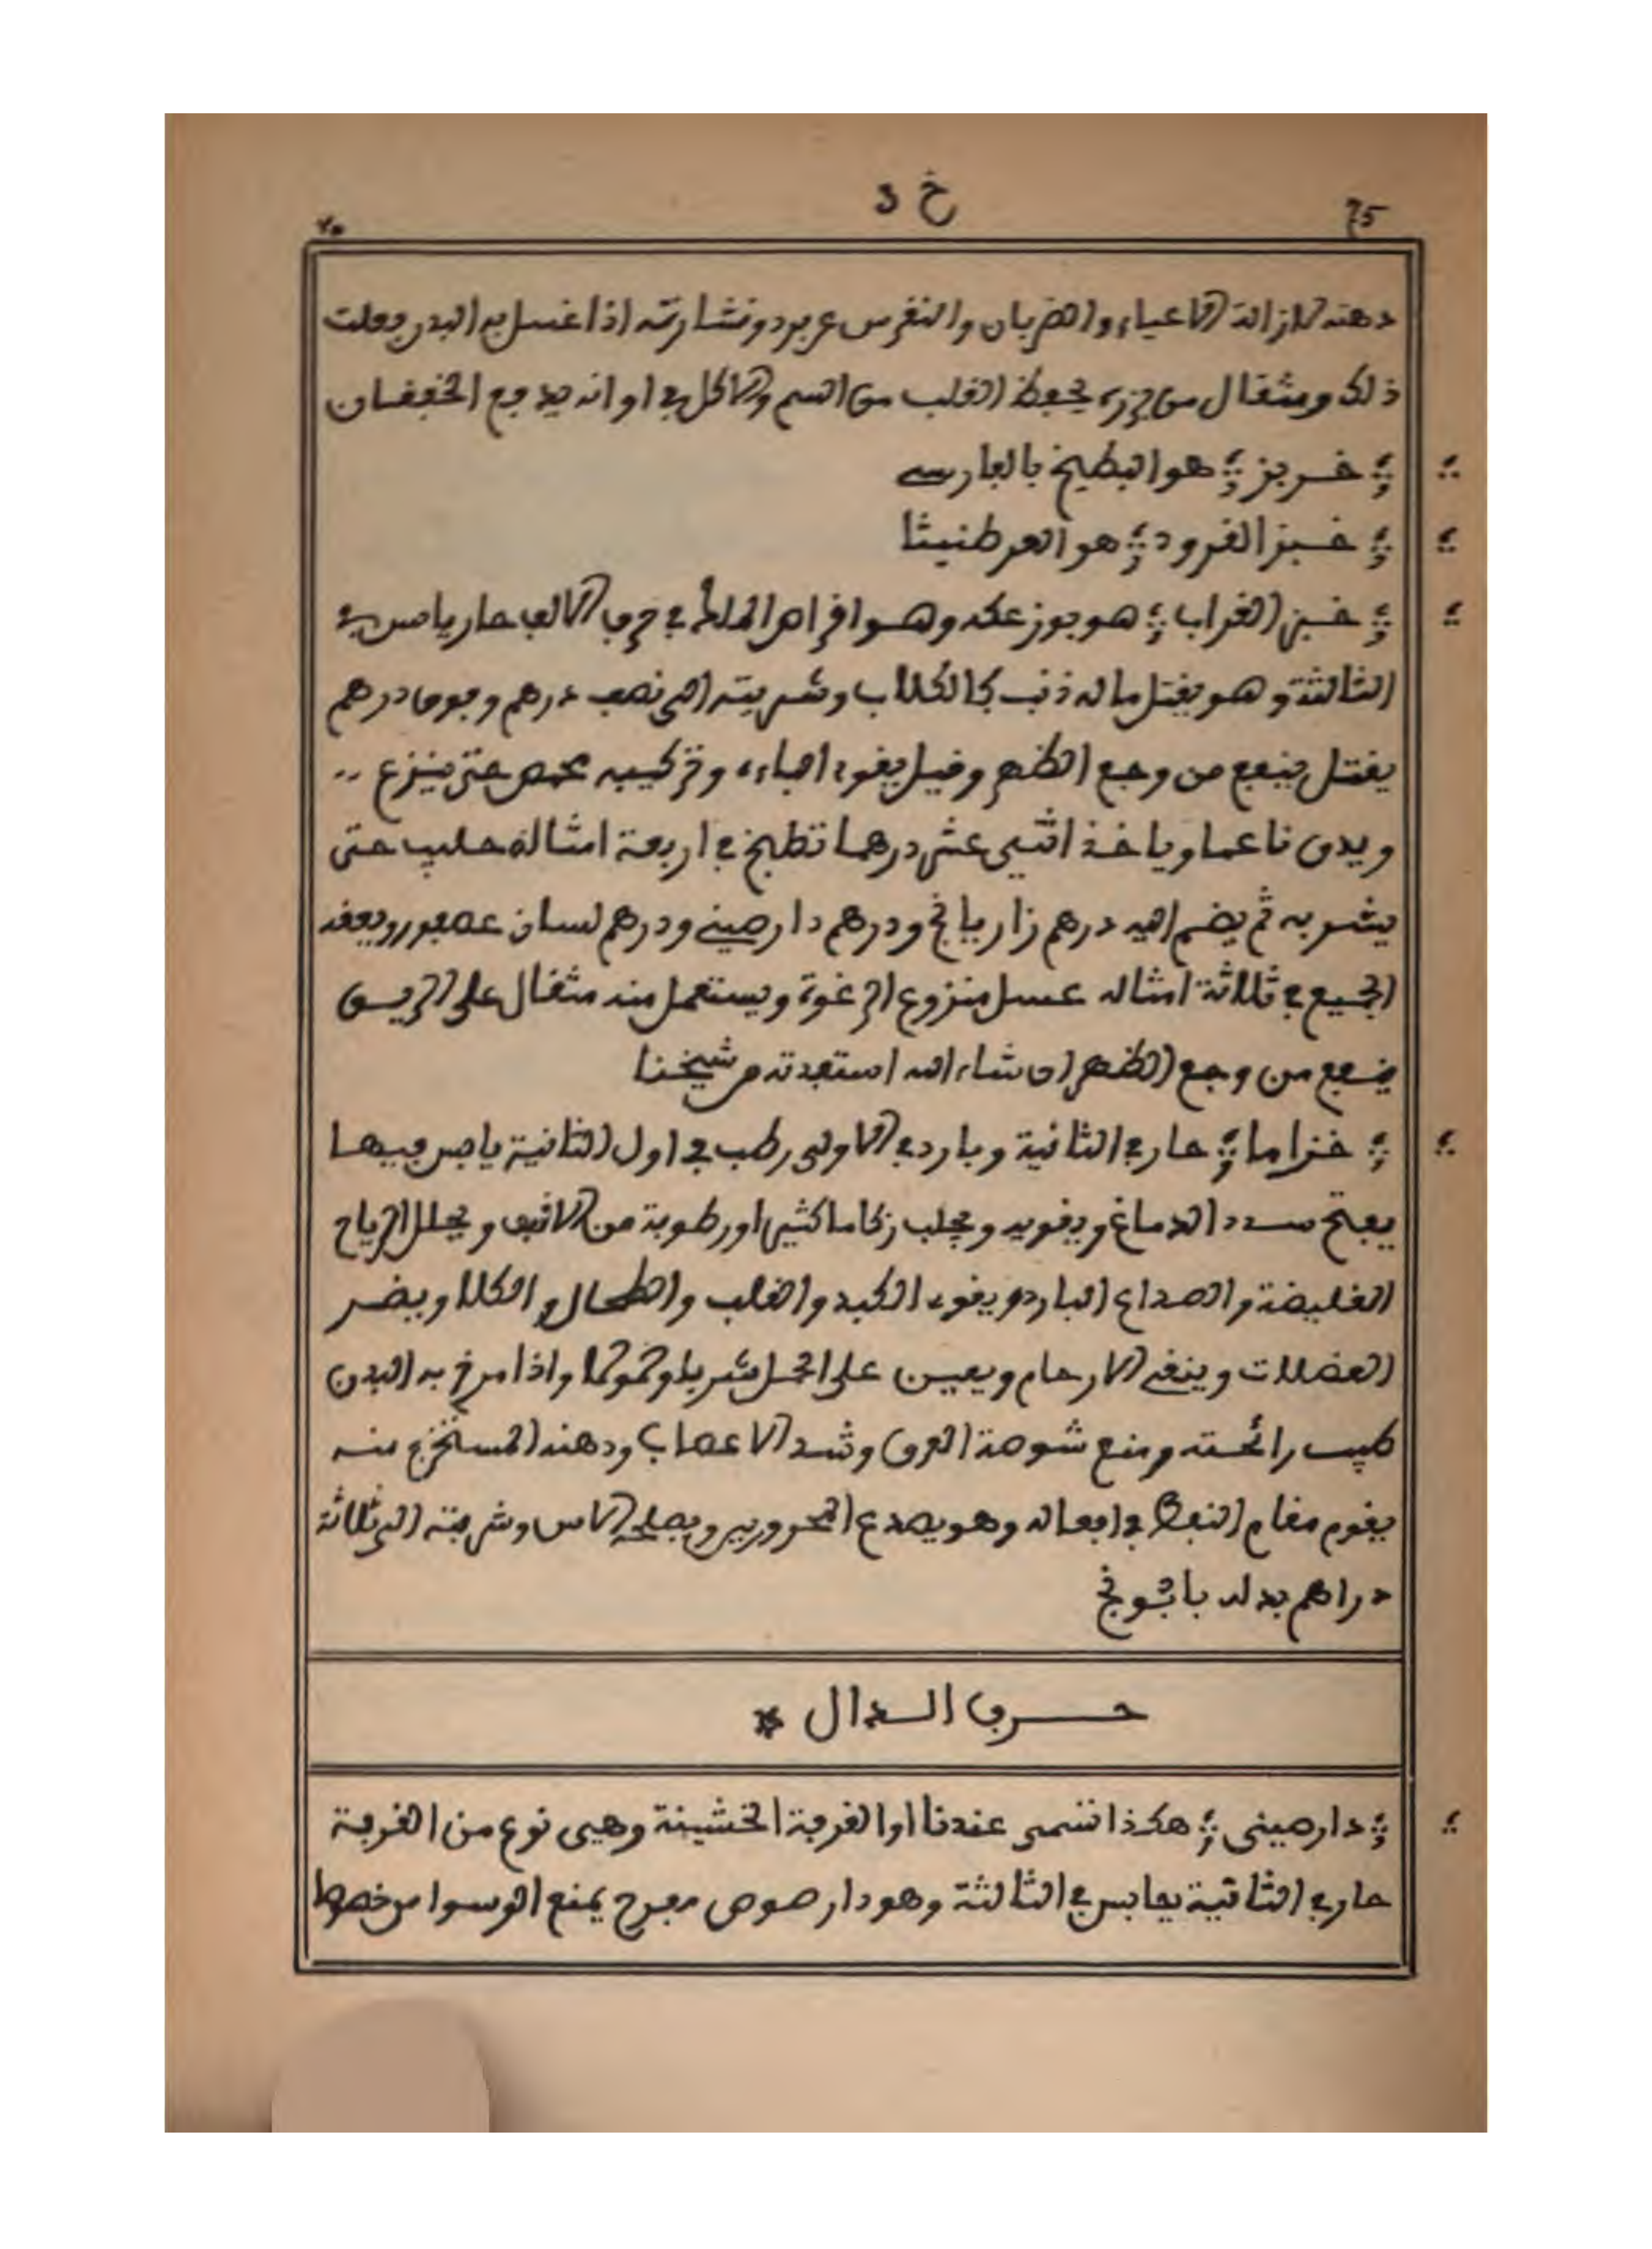 75 خ د ٧٥
دهنه لازالة الاعياء والضربان والنقرس عن برد ونشارته اذا غسل به البدن فعلت
ذلك ومثقال من بزره يحفظ القلب من السم والاكل في اوانه يدفع الخفقان
خربز هو البطيخ بالفارسي
خبز القرود هو العرطنيثا
خبز الغراب هو بوزعكه وهو اقراص الملك في حرف الالف حار يابس في
الثالثة وهو يقتل ما له ذنب كالكلاب وشربته الى نصف درهم وفوق درهم
يقتل ينفع من وجع الظهر وقيل يقوي الباءة وتركيبه يحمص حتى ينزع
ويدق ناعما وياخذ اثني عشر درهما تطبخ في اربعة امثاله حليب حتى
يشربه ثم يضم اليه درهم زاريانج ودرهم دارصيني ودرهم لسان عصفور ويعقد
الجميع في ثلاثة امثاله عسل منزوع الرغوة ويستعمل منه مثقال على الريق
ينفع من وجع الظهر ان شاء الله استفدته من شيخنا
خزاما حار في الثانية وبارد في الاولى رطب في اول الثانية يابس فيها
يفتح سدد الدماغ ويقويه ويجلب زكاما كثيرا ورطوبة من الانف ويحلل الرياح
الغليضة والصداع البارد ويقوي الكبد والقلب والطحال والكلا ويضر
العضلات وينقي الارحام ويعين على الحمل شربا وحمولا واذا مرخ به البدن
طيب رائحته ومنع شوصة العرق وشد الاعصاب ودهنه المستخرج منه
يقوم مقام النفط في افعاله وهو يصدع المحرورين ويصلحه الاس وشربته الى ثلاثة
دراهم بدله بابونج
حرف الدال *
دارصيني هكذا تسمى عندنا او القرفة الخشينة وهي نوع من القرفة
حار في الثانية يابس في الثالثة وهو دار صوص مفرح يمنع الوسواس خصوصا